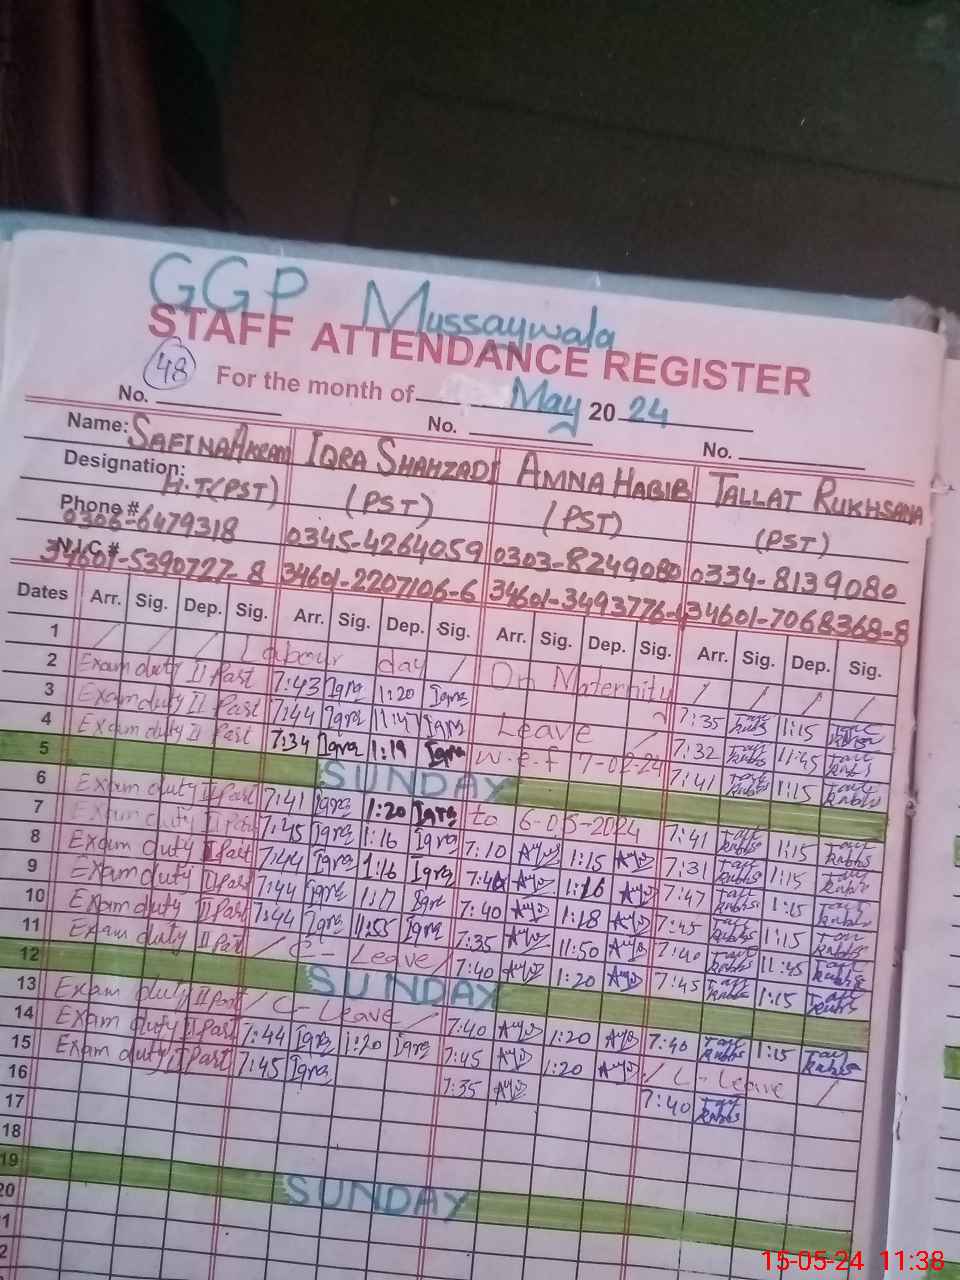 GGP Mussaywala
STAFF ATTENDANCE REGISTER
48 For the month of May 2024
No. No. No.
Name: SAFINA AKRAM IQRA SHAHZADI AMNA HABIB TALLAT RUKHSANA
Designation: H.T(PST) (PST) (PST) (PST)
Phone # 0306-6479318 0345-4264059 0303-8249080 0334-8139080
N.I.C # 34601-5390727-8 34601-2207106-6 34601-3493776-4 34601-7068368-8
Dates Arr. Sig. Dep. Sig. Arr. Sig. Dep. Sig. Arr. Sig. Dep. Sig. Arr. Sig. Dep. Sig.
1 / / / Labour day / On Maternity / / / /
2 Exam duty II Part 7:43 Iqra 1:20 Iqra Leave 7:35 1:15
3 Exam duty II Part 7:44 Iqra 11:47 Iqra 7:32 11:45
4 Exam duty II Part 7:34 Iqra 1:19 Iqra w.e.f 7-02-24 7:41 1:15
5 SUNDAY
6 Exam duty II Part 7:41 Iqra 1:20 Iqra to 6-05-2024 7:41 1:15
7 Exam duty II Part 7:45 Iqra 1:16 Iqra 7:10 1:15 7:31 1:15
8 Exam duty II Part 7:44 Iqra 1:16 Iqra 7:46 1:16 7:47 1:15
9 Exam duty II Part 7:44 Iqra 1:17 Iqra 7:40 1:18 7:45 1:15
10 Exam duty II Part 7:44 Iqra 11:55 Iqra 7:35 11:50 7:40 11:45
11 Exam duty II Part / C-Leave / 7:40 1:20 7:45 1:15
12 SUNDAY
13 Exam duty II Part / C-Leave / 7:40 1:20 7:40 1:15
14 Exam duty II Part 7:44 Iqra 1:20 Iqra 7:45 1:20 / C-Leave /
15 Exam duty II Part 7:45 Iqra 7:35 7:40
16
17
18
19 SUNDAY
20
15-05-24 11:38